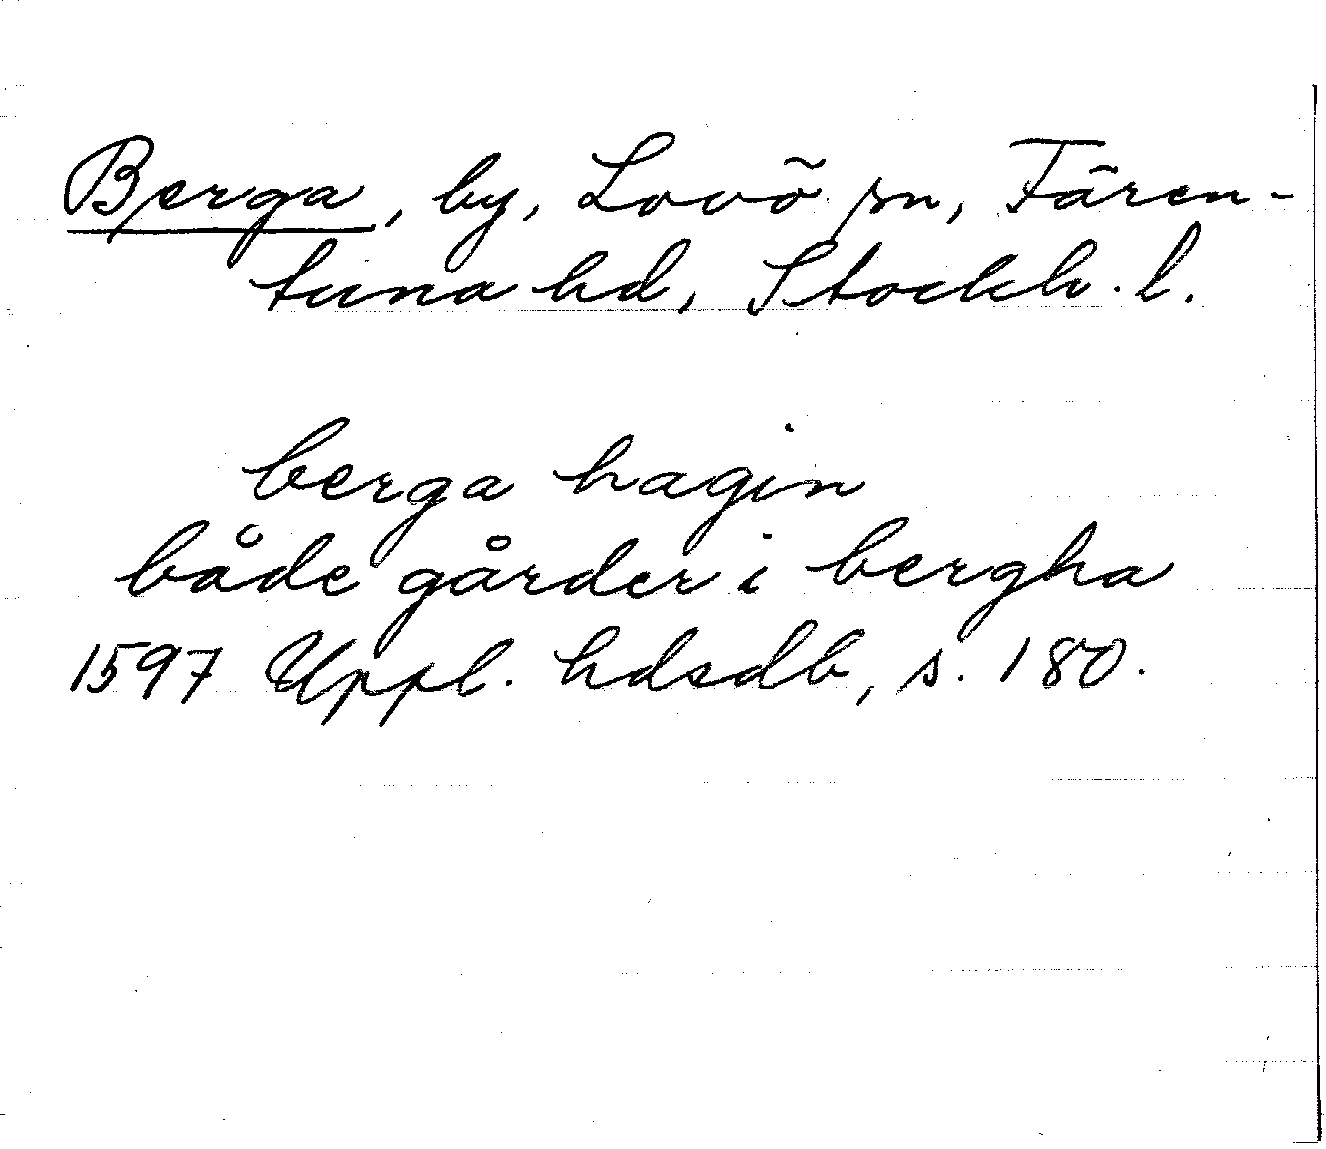 Berga, by, Lovö sn, Fären-
tuna hd, Stockh. l.
berga hagin
både gårder i bergha
1597 Uppl. hdsdb, s. 180.